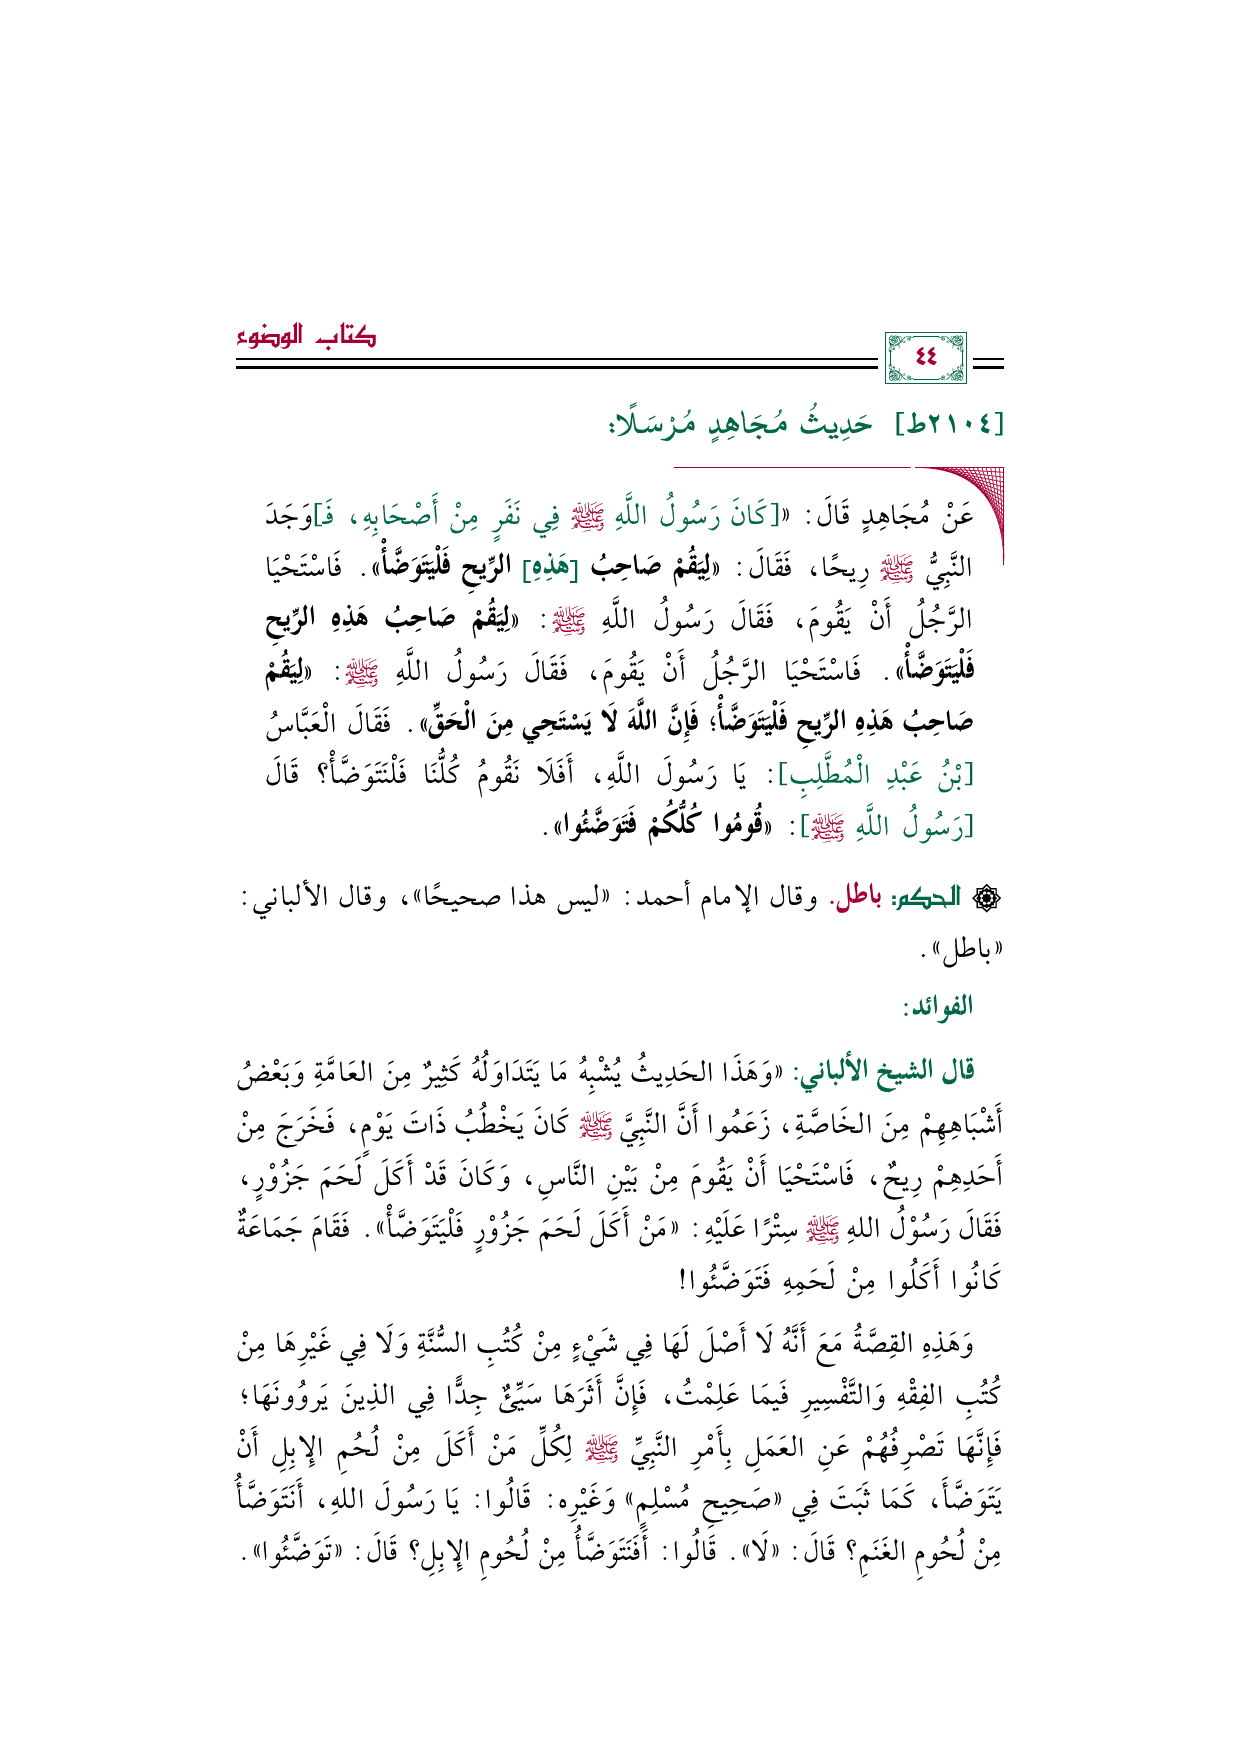 كتاب الوضوء
٤٤
[٢١٠٤ط] حَدِيثُ مُجَاهِدٍ مُرْسَلًا:
عَنْ مُجَاهِدٍ قَالَ: «[كَانَ رَسُولُ اللَّهِ ﷺ فِي نَفَرٍ مِنْ أَصْحَابِهِ، فَـ]وَجَدَ
النَّبِيُّ ﷺ رِيحًا، فَقَالَ: «لِيَقُمْ صَاحِبُ [هَذِهِ] الرِّيحِ فَلْيَتَوَضَّأْ». فَاسْتَحْيَا
الرَّجُلُ أَنْ يَقُومَ، فَقَالَ رَسُولُ اللَّهِ ﷺ: «لِيَقُمْ صَاحِبُ هَذِهِ الرِّيحِ
فَلْيَتَوَضَّأْ». فَاسْتَحْيَا الرَّجُلُ أَنْ يَقُومَ، فَقَالَ رَسُولُ اللَّهِ ﷺ: «لِيَقُمْ
صَاحِبُ هَذِهِ الرِّيحِ فَلْيَتَوَضَّأْ؛ فَإِنَّ اللَّهَ لَا يَسْتَحِي مِنَ الْحَقِّ». فَقَالَ الْعَبَّاسُ
[بْنُ عَبْدِ الْمُطَّلِبِ]: يَا رَسُولَ اللَّهِ، أَفَلَا نَقُومُ كُلُّنَا فَلْنَتَوَضَّأْ؟ قَالَ
[رَسُولُ اللَّهِ ﷺ]: «قُومُوا كُلُّكُمْ فَتَوَضَّئُوا».
الحكم: باطل. وقال الإمام أحمد: «ليس هذا صحيحًا»، وقال الألباني:
«باطل».
الفوائد:
قال الشيخ الألباني: «وَهَذَا الحَدِيثُ يُشْبِهُ مَا يَتَدَاوَلُهُ كَثِيرٌ مِنَ العَامَّةِ وَبَعْضُ
أَشْبَاهِهِمْ مِنَ الخَاصَّةِ، زَعَمُوا أَنَّ النَّبِيَّ ﷺ كَانَ يَخْطُبُ ذَاتَ يَوْمٍ، فَخَرَجَ مِنْ
أَحَدِهِمْ رِيحٌ، فَاسْتَحْيَا أَنْ يَقُومَ مِنْ بَيْنِ النَّاسِ، وَكَانَ قَدْ أَكَلَ لَحَمَ جَزُوْرٍ،
فَقَالَ رَسُوْلُ اللهِ ﷺ سِتْرًا عَلَيْهِ: «مَنْ أَكَلَ لَحَمَ جَزُوْرٍ فَلْيَتَوَضَّأْ». فَقَامَ جَمَاعَةٌ
كَانُوا أَكَلُوا مِنْ لَحَمِهِ فَتَوَضَّئُوا!
وَهَذِهِ القِصَّةُ مَعَ أَنَّهُ لَا أَصْلَ لَهَا فِي شَيْءٍ مِنْ كُتُبِ السُّنَّةِ وَلَا فِي غَيْرِهَا مِنْ
كُتُبِ الفِقْهِ وَالتَّفْسِيرِ فَيمَا عَلِمْتُ، فَإِنَّ أَثَرَهَا سَيِّئٌ جِدًّا فِي الذِينَ يَروُونَهَا؛
فَإِنَّهَا تَصْرِفُهُمْ عَنِ العَمَلِ بِأَمْرِ النَّبِيِّ ﷺ لِكُلِّ مَنْ أَكَلَ مِنْ لُحُمِ الإِبِلِ أَنْ
يَتَوَضَّأَ، كَمَا ثَبَتَ فِي «صَحِيحِ مُسْلِمٍ» وَغَيْرِه: قَالُوا: يَا رَسُولَ اللهِ، أَنَتَوَضَّأُ
مِنْ لُحُومِ الغَنَمِ؟ قَالَ: «لَا». قَالُوا: أَفَنَتَوَضَّأُ مِنْ لُحُومِ الإِبِلِ؟ قَالَ: «تَوَضَّئُوا».